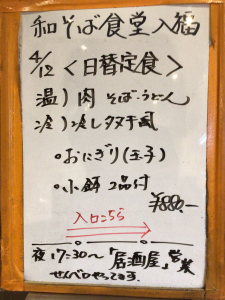 和そば食堂入福
4/12 <日替定食>
温）肉 そば・うどん
冷）冷しタヌキ風
•おにぎり(玉子)
•小鉢 2品付
¥880.-
入口こちら
夜17:30〜「居酒屋」営業
せんべろやってます